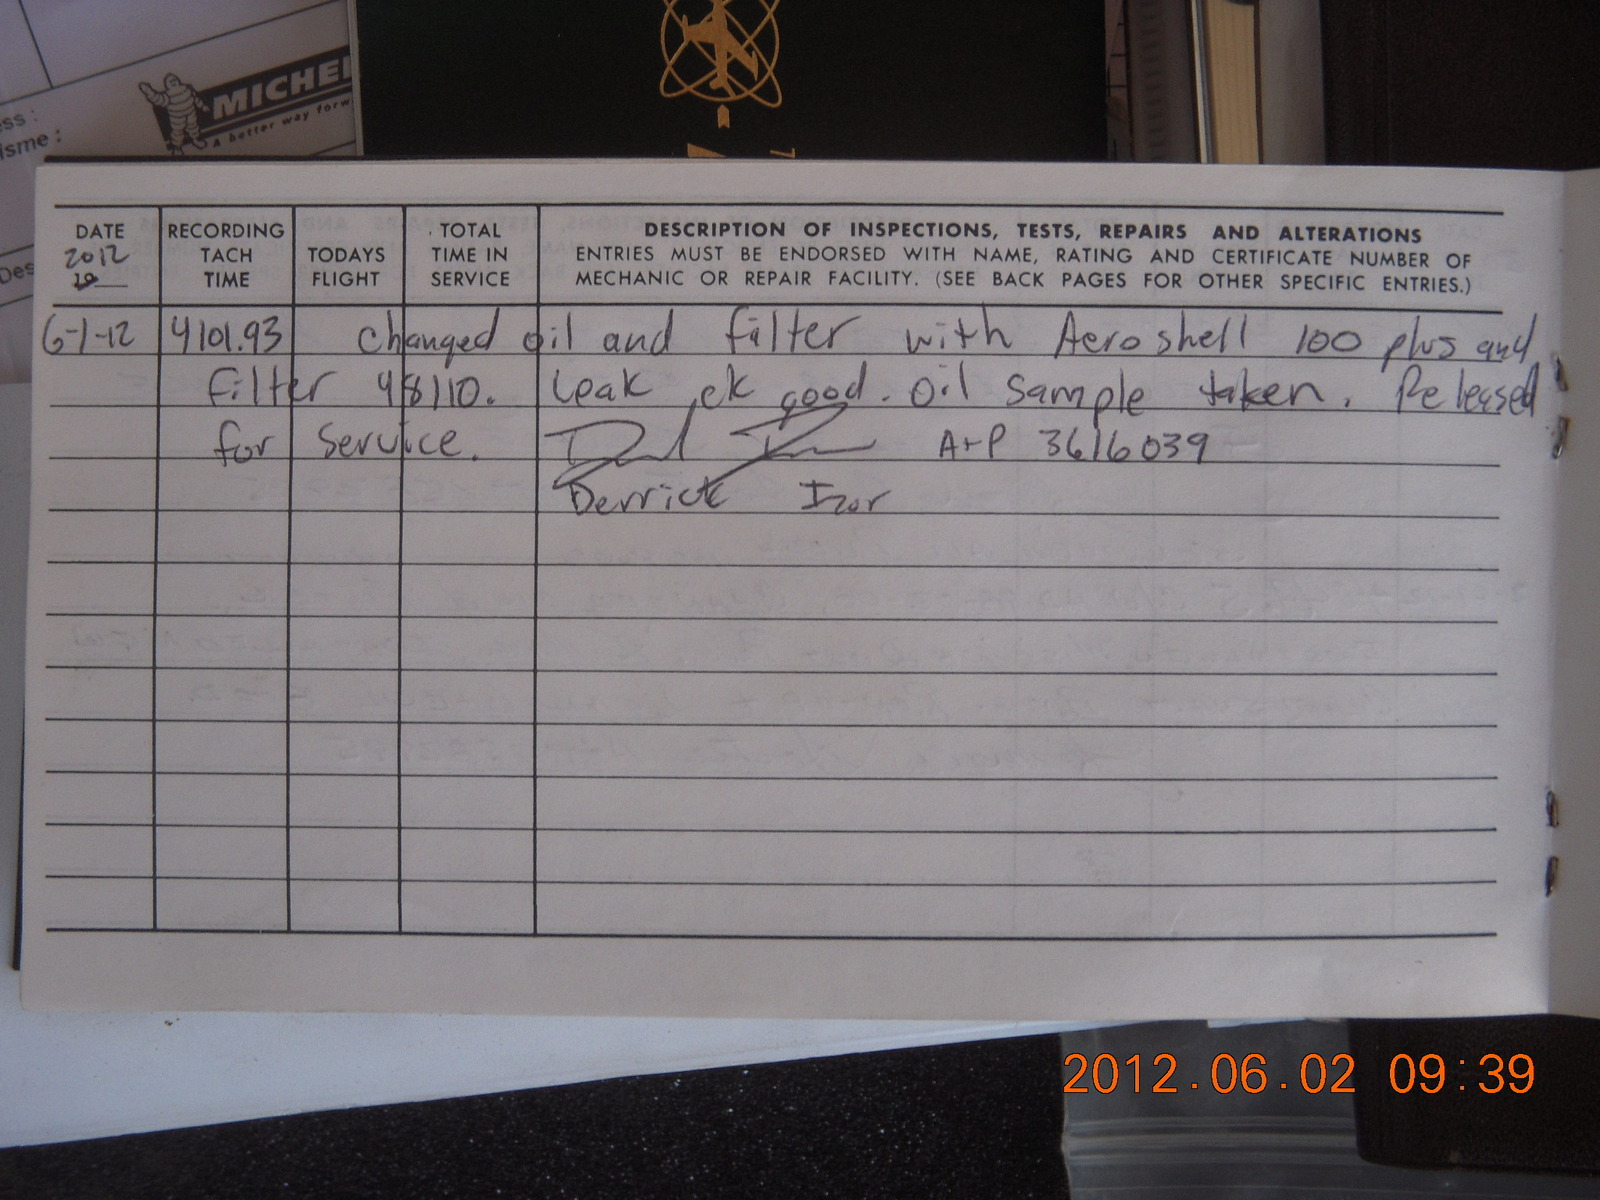 ss :
isme :
MICHEL
A better way forw
Des
DATE
2012
RECORDING
TACH
TIME
TODAYS
FLIGHT
TOTAL
TIME IN
SERVICE
DESCRIPTION OF INSPECTIONS, TESTS, REPAIRS AND ALTERATIONS
ENTRIES MUST BE ENDORSED WITH NAME, RATING AND CERTIFICATE NUMBER OF
MECHANIC OR REPAIR FACILITY. (SEE BACK PAGES FOR OTHER SPECIFIC ENTRIES.)
6-1-12 4101.93 Changed oil and filter with Aeroshell 100 plus and
filter 48110. Leak ck good. Oil sample taken. Released
for service. A+P 3616039
Derrick Izor
2012.06.02 09:39